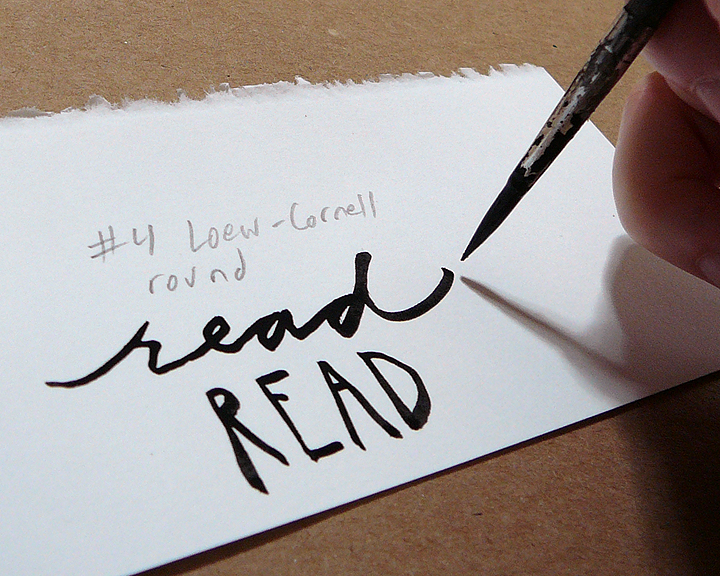 #4 Loew-Cornell
round
read
READ